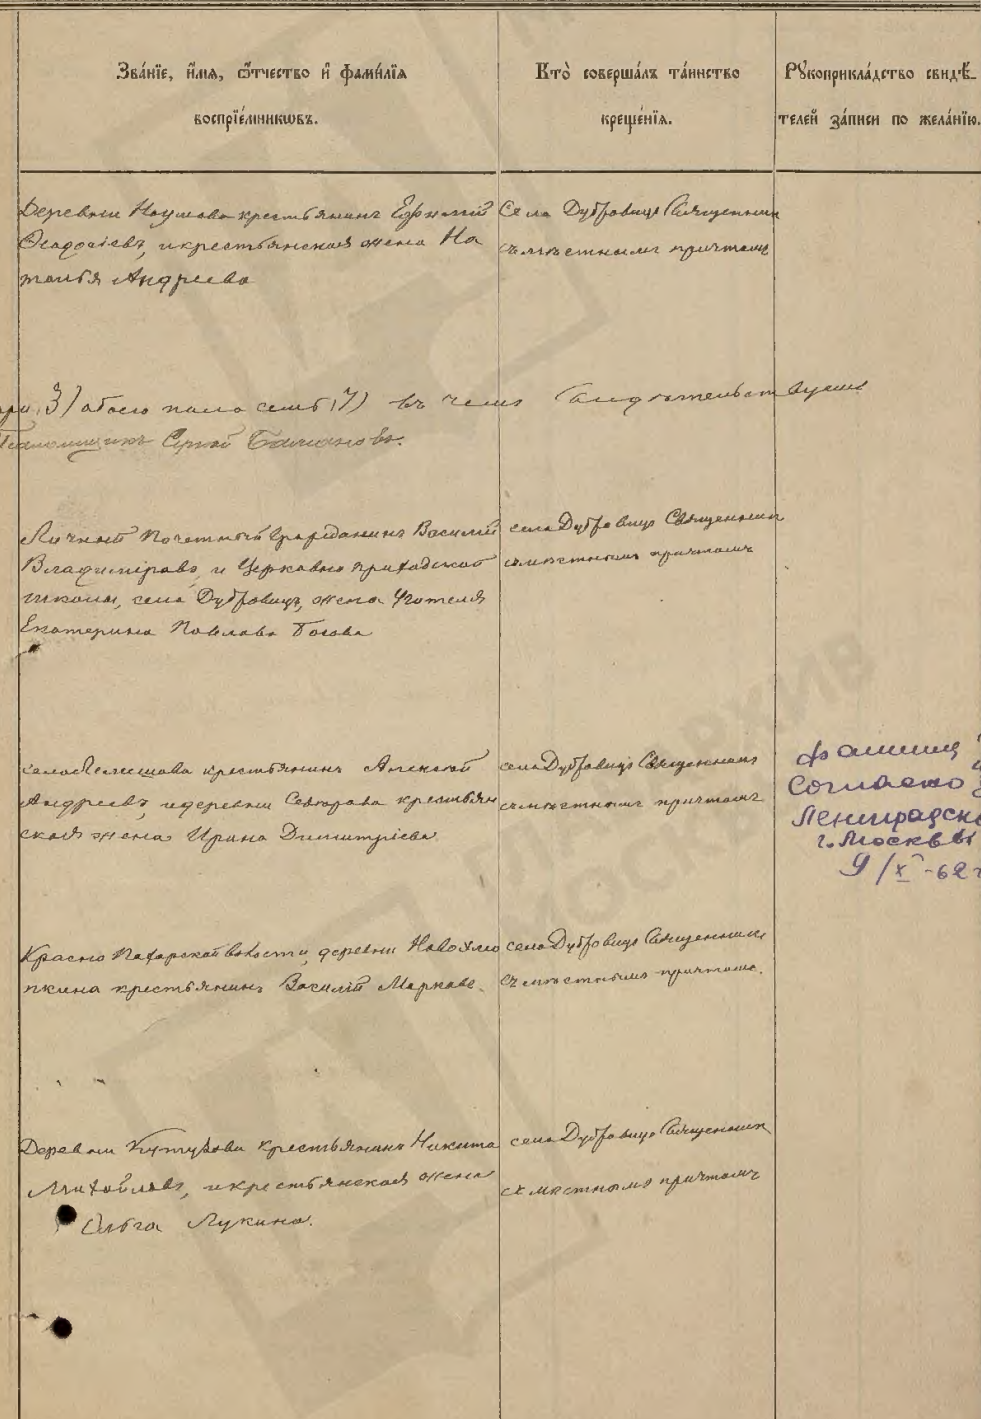 Зва́нїе, и́мѧ, ѻ́тчество и҆ фами́лїѧ
воспрїе́мникѡвъ.
Кто̀ соверша́лъ та́инство
креще́нїѧ.
Рꙋкоприкла́дство свидѣ-
телей за́писи по жела́нїю.
Деревни Наумова крестьянинъ Ефимій
Феодосіевъ, и крестьянская жена На
талья Андреева
Села Дубровицъ Священникъ
съ мѣстнымъ причтомъ
3) обоего пола семь (7) въ чемъ свидѣтельствуемъ
Псаломщикъ Сергій
Личный Почетный Гражданинъ Василій
Владиміровъ, и Церковно приходской
школы, села Дубровицъ, жена Учителя
Екатерина Павлова
села Дубровицъ Священникъ
съ мѣстнымъ причтомъ
села Лемешова крестьянинъ Алексѣй
Андреевъ, и деревни крестьян
ская жена Ирина Димитріева
села Дубровицъ Священникъ
съ мѣстнымъ причтомъ
фамилия
Согласно
Ленинградско
г. Москвы
9/X-62г
Красно Пахорской волости, деревни Новохло
пкина крестьянинъ Василій Марковъ.
села Дубровицъ Священникъ
съ мѣстнымъ причтомъ.
Деревни Кутузова крестьянинъ Никита
Михайловъ, и крестьянская жена
Ольга Лукина.
села Дубровицъ Священникъ
съ мѣстнымъ причтомъ